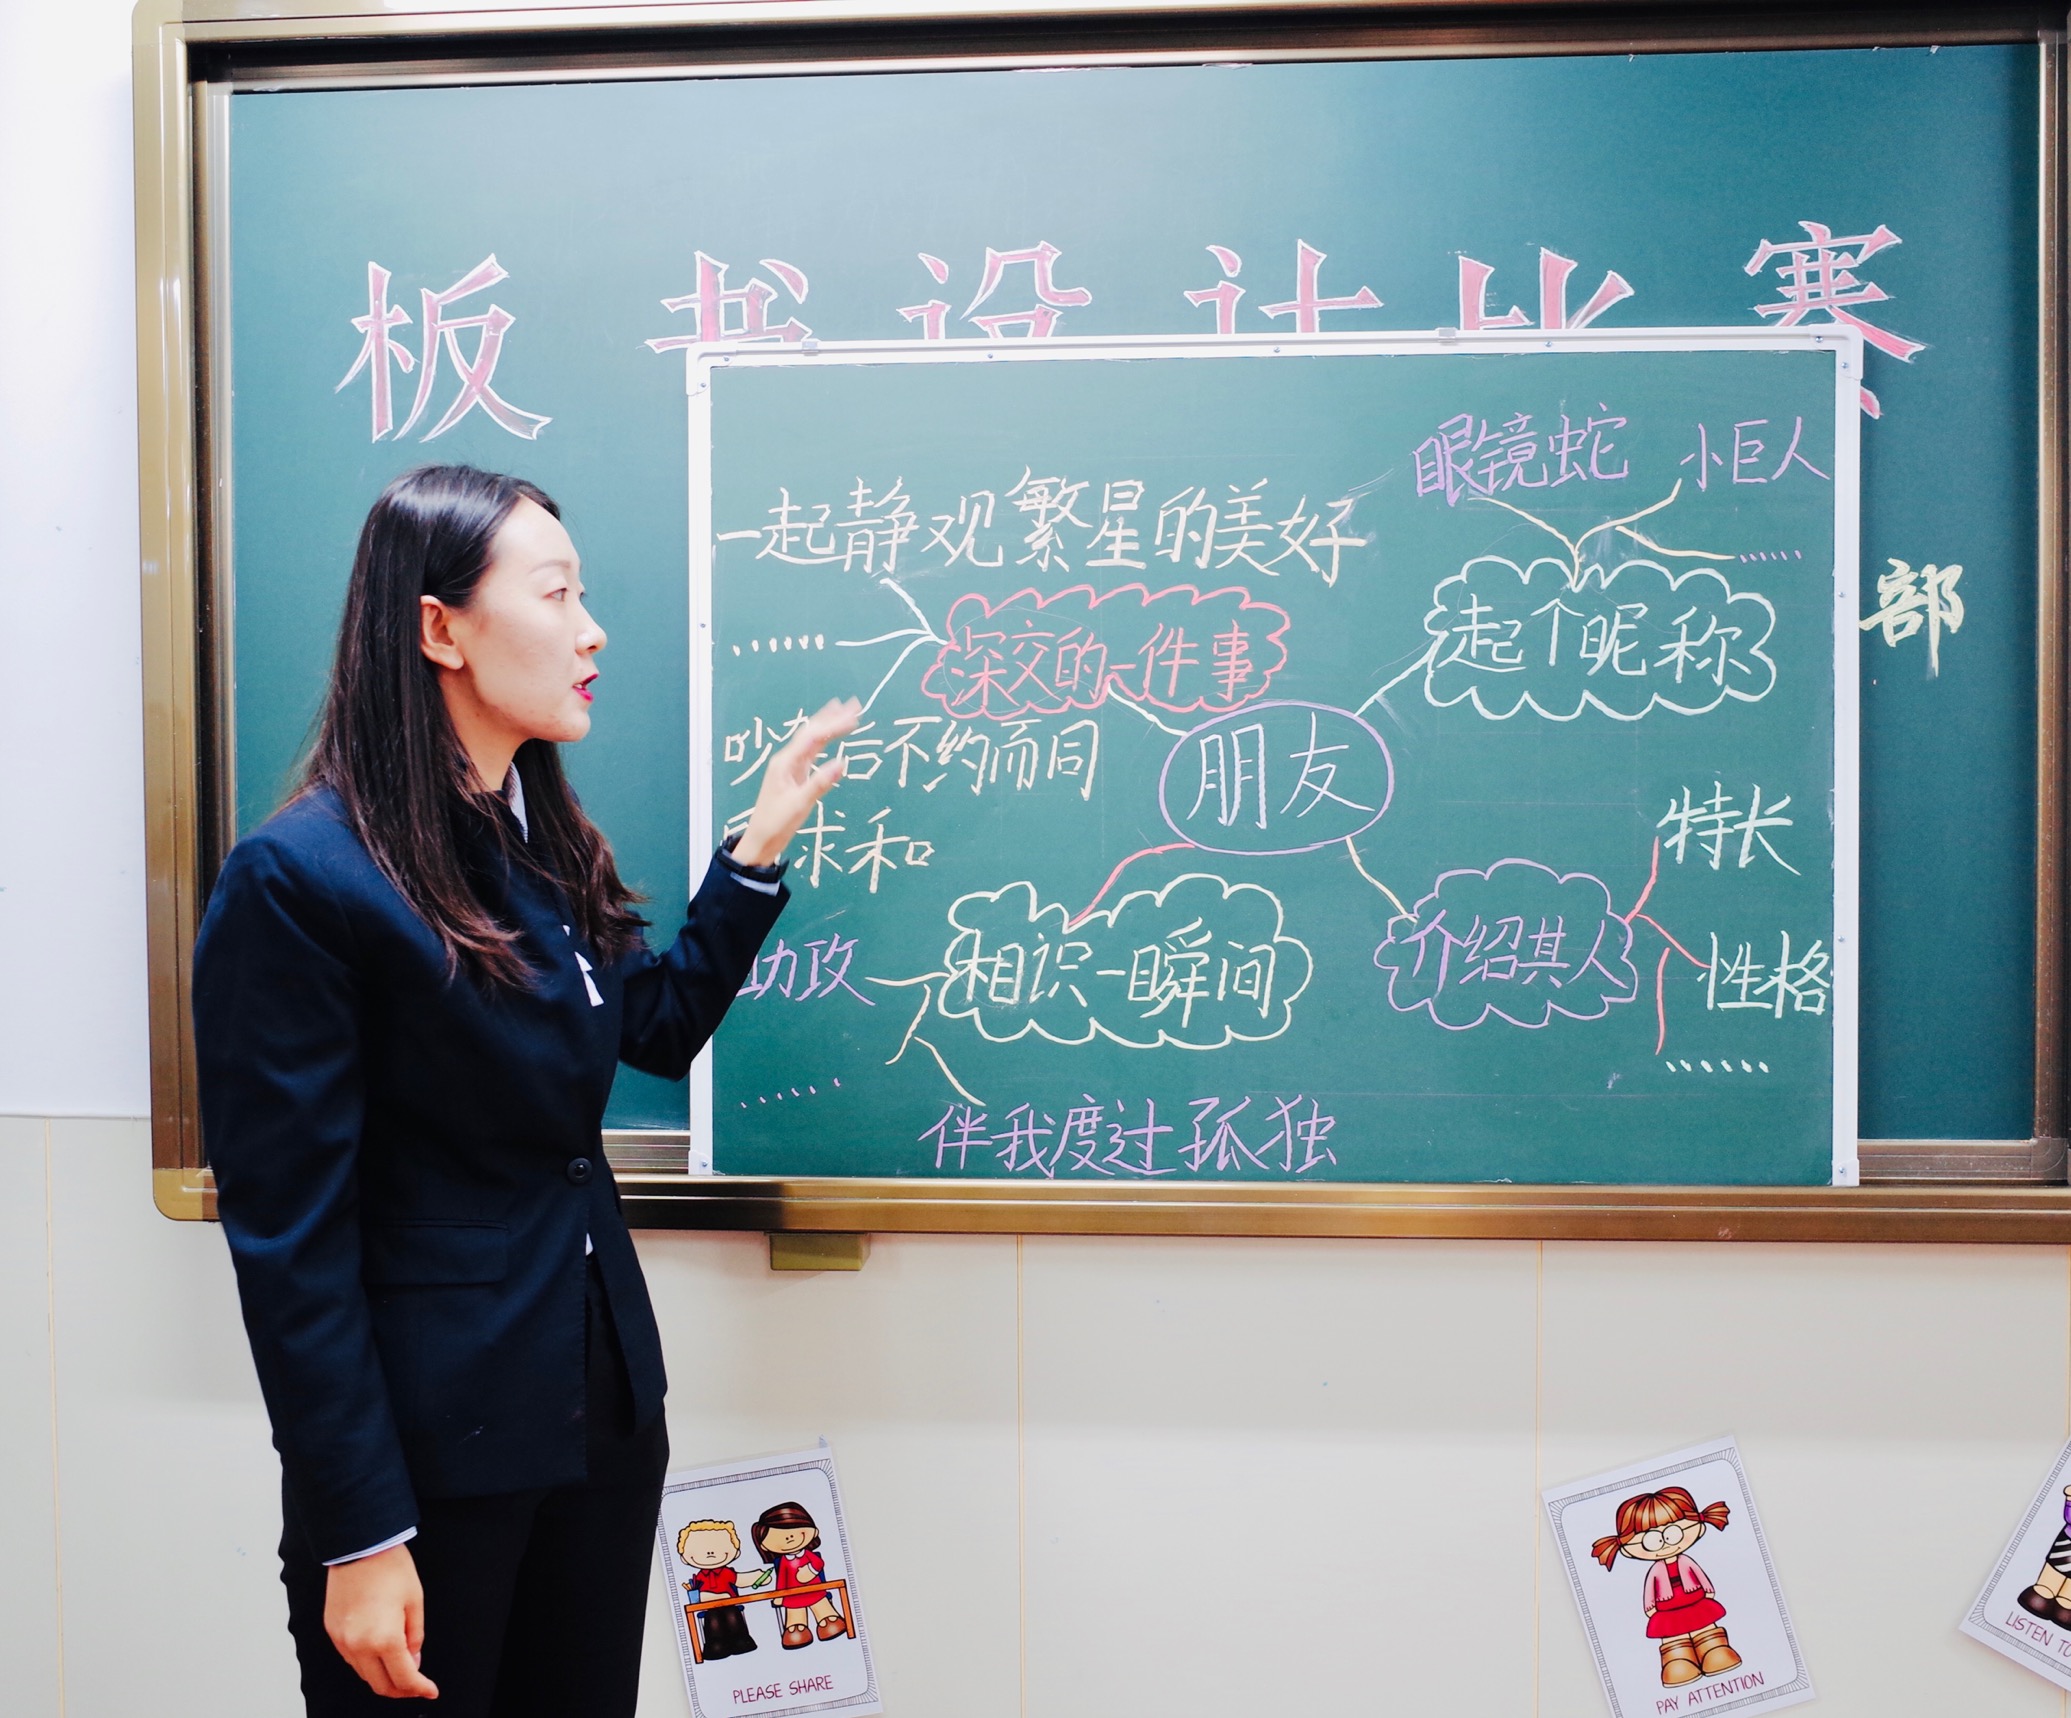 板书设计比赛
眼镜蛇 小巨人
一起静观繁星的美好
……
部
起个昵称
……
深交的一件事
吵 后不约而同
朋友
求和
特长
相识一瞬间
介绍其人
助攻
性格
……
……
伴我度过孤独
PLEASE SHARE
PAY ATTENTION
LISTEN